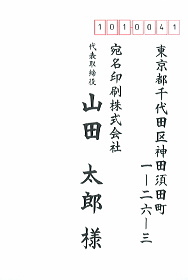 1010041
東京都千代田区神田須田町
一ー二六ー三
宛名印刷株式会社
代表取締役
山田 太郎 様